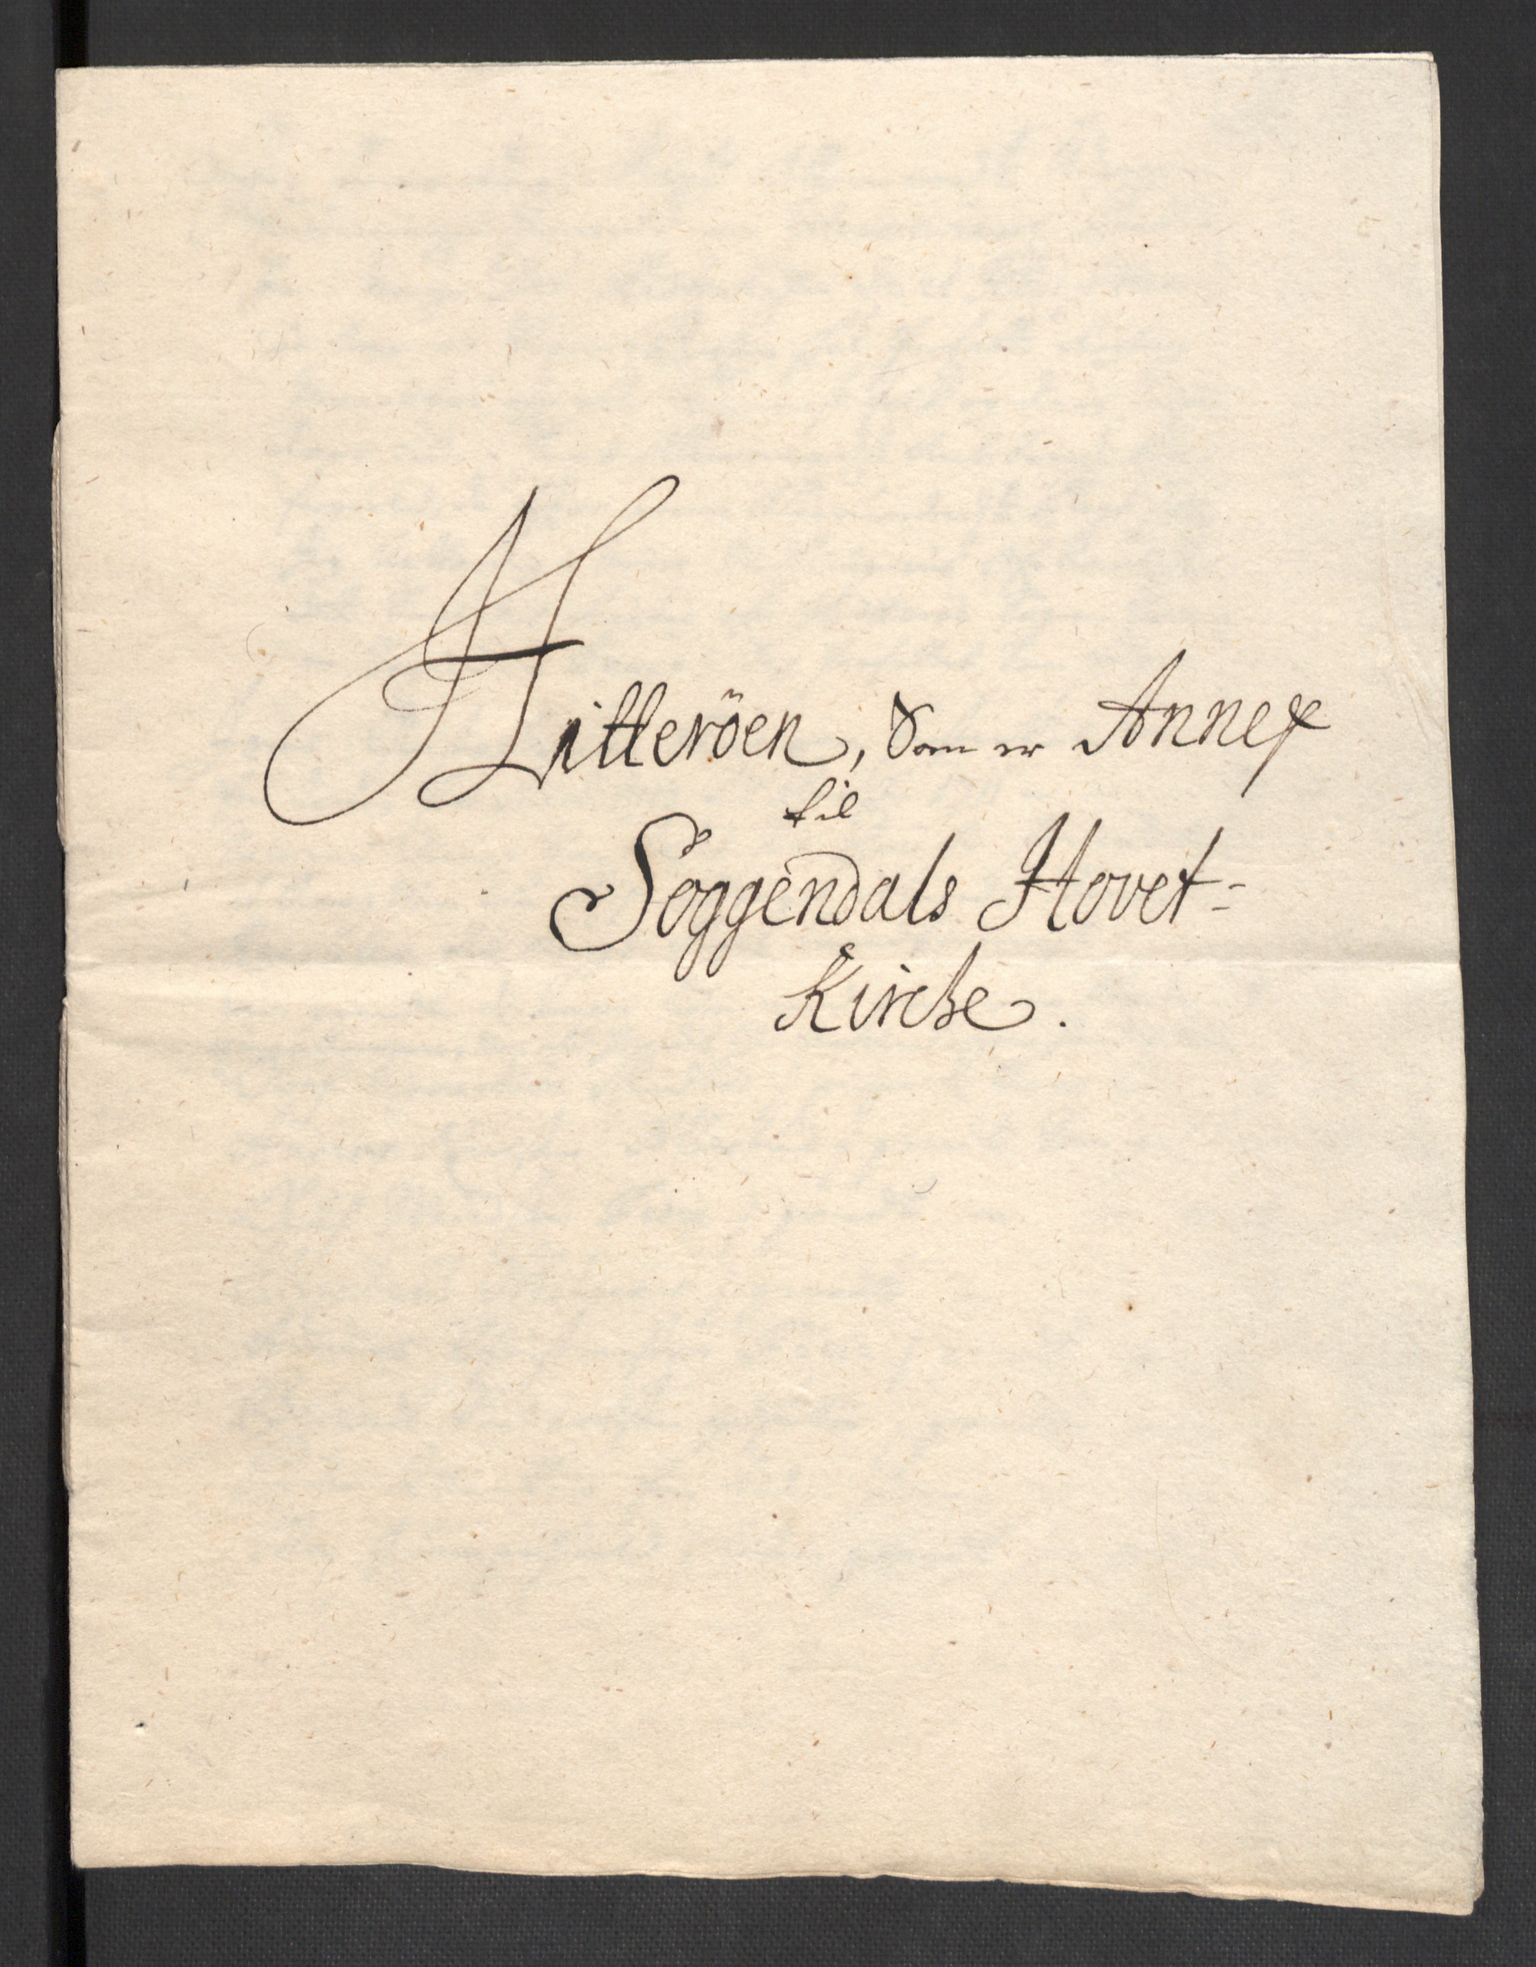 Hitteröen, Som er Annex
til
Soggendals Hovet=
Kirche.